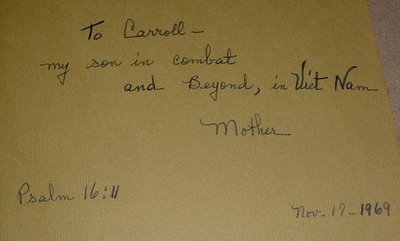 To Carroll –
my son in combat
and Beyond, in Viet Nam
Mother
Psalm 16:11
Nov. 17 – 1969